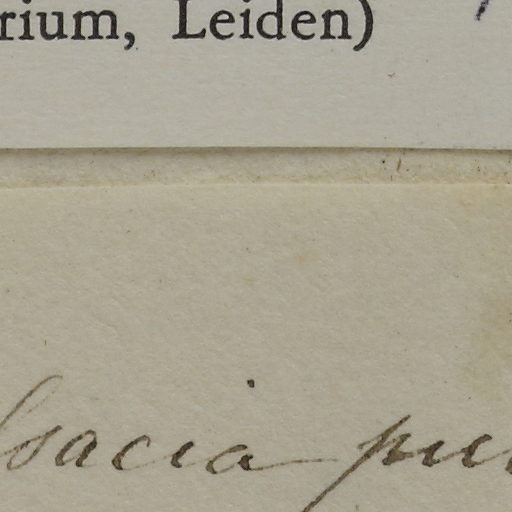 rium, Leiden)
lsacia pu